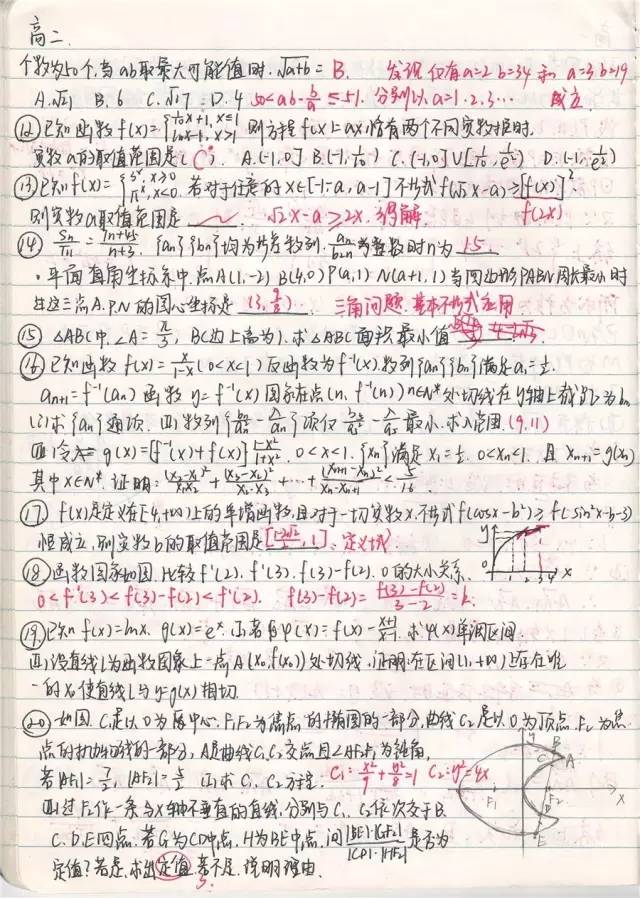 高二.
个数为50个,当ab取最大可能值时.√a+b = B. 发现仅有a=2 b=34 和 a=3,b=19
A.√21 B. 6 C.√17 D. 4 50<ab-b/a≤51. 分别以a=1.2.3… 成立
⑫已知函数f(x)={1/10x+1, x≤1 lnx-1, x>1 则方程f(x)=ax恰有两个不同实数根时.
实数a的取值范围是( C ). A.(-1,0] B.(-1,1/10) C.(-1,0]∪[1/10,1/e²) D.(-1,1/e²)
⑬已知f(x)={ x≥0 x<0. 若对于任意的x∈[1-a,a-1]不等式f(√2x-a)≥[f(x)]²
则实数a取值范围是 √2x-a≥2x.得解. f(2x)
⑭ Sn/Tn=7n+45/n+3. {an}{bn}均为等差数列. an/b2n为整数时n为 15
·平面直角坐标系中.点A(1,-2) B(4,0) P(a,1) N(a+1,1)当四边形PABN周长最小时
过这三点A.P.N的圆心坐标是 (3,-9/8) 三角问题.基本不等式应用
⑮ △ABC中,∠A=π/3, BC边上高为1.求△ABC面积最小值
⑯已知函数f(x)=x/1-x(0<x<1)反函数为f⁻¹(x).数列{an}{bn}满足a1=1/2.
an+1=f⁻¹(an) 函数y=f⁻¹(x)图象在点(n,f⁻¹(n))n∈N*处切线在y轴上截距为bn
(1)求{an}通项 (2)数列{bn/an² - λ/an}项仅 最小.求λ范围.(9,11)
(3)令 g(x)=[f⁻¹(x)+f(x)]1-x²/1+x². 0<x<1. {xn}满足x1=1/2. 0<xn<1. 且xn+1=g(xn)
其中x∈N*. 证明:(x2-x1)²/x1x2+(x3-x2)²/x2·x3+…+(xn+1-xn)²/xn·xn+1<5/16
⑰ f(x)是定义在[-4,+∞)上的单增函数,且对于一切实数x.不等式f(cosx-b²)≥f(sin²x-b-3)
恒成立,则实数b的取值范围是[1/2-√2,1].定义域
⑱函数图象如图.比较f'(2).f'(3).f(3)-f(2).0的大小关系.
0<f'(3)<f(3)-f(2)<f'(2). f(3)-f(2)=f(3)-f(2)/3-2=k.
y 0 1 2 3 4 x
⑲已知f(x)=lnx. g(x)=eˣ. (1)若φ(x)=f(x)-x+1/x-1.求φ(x)单调区间
(2)设直线l为函数图象上一点A(x0,f(x0))处切线.证明:在区间(1,+∞)上存在唯
一的x0使直线l与y=g(x)相切.
⑳如图. C1是以O为原中心. F1F2为焦点的椭圆的一部分,曲线C2是以O为顶点.F2为焦
点的抛物线的一部分,A是曲线C1C2交点且∠AF2F1为钝角.
若|AF1|=7/2 |AF2|=5/2 (1)求C1.C2方程. C1:x²/9+y²/8=1 C2:y²=4x
(2)过F2作一条与x轴不垂直的直线,分别与C1、C2依次交于B.
C.D.E四点.若G为CD中点.H为BE中点.问|BE|·|GF2|/|CD|·|HF2|是否为
定值?若是,求出定值.若不是.说明理由.
3.
y B C A F1 F2 x D E